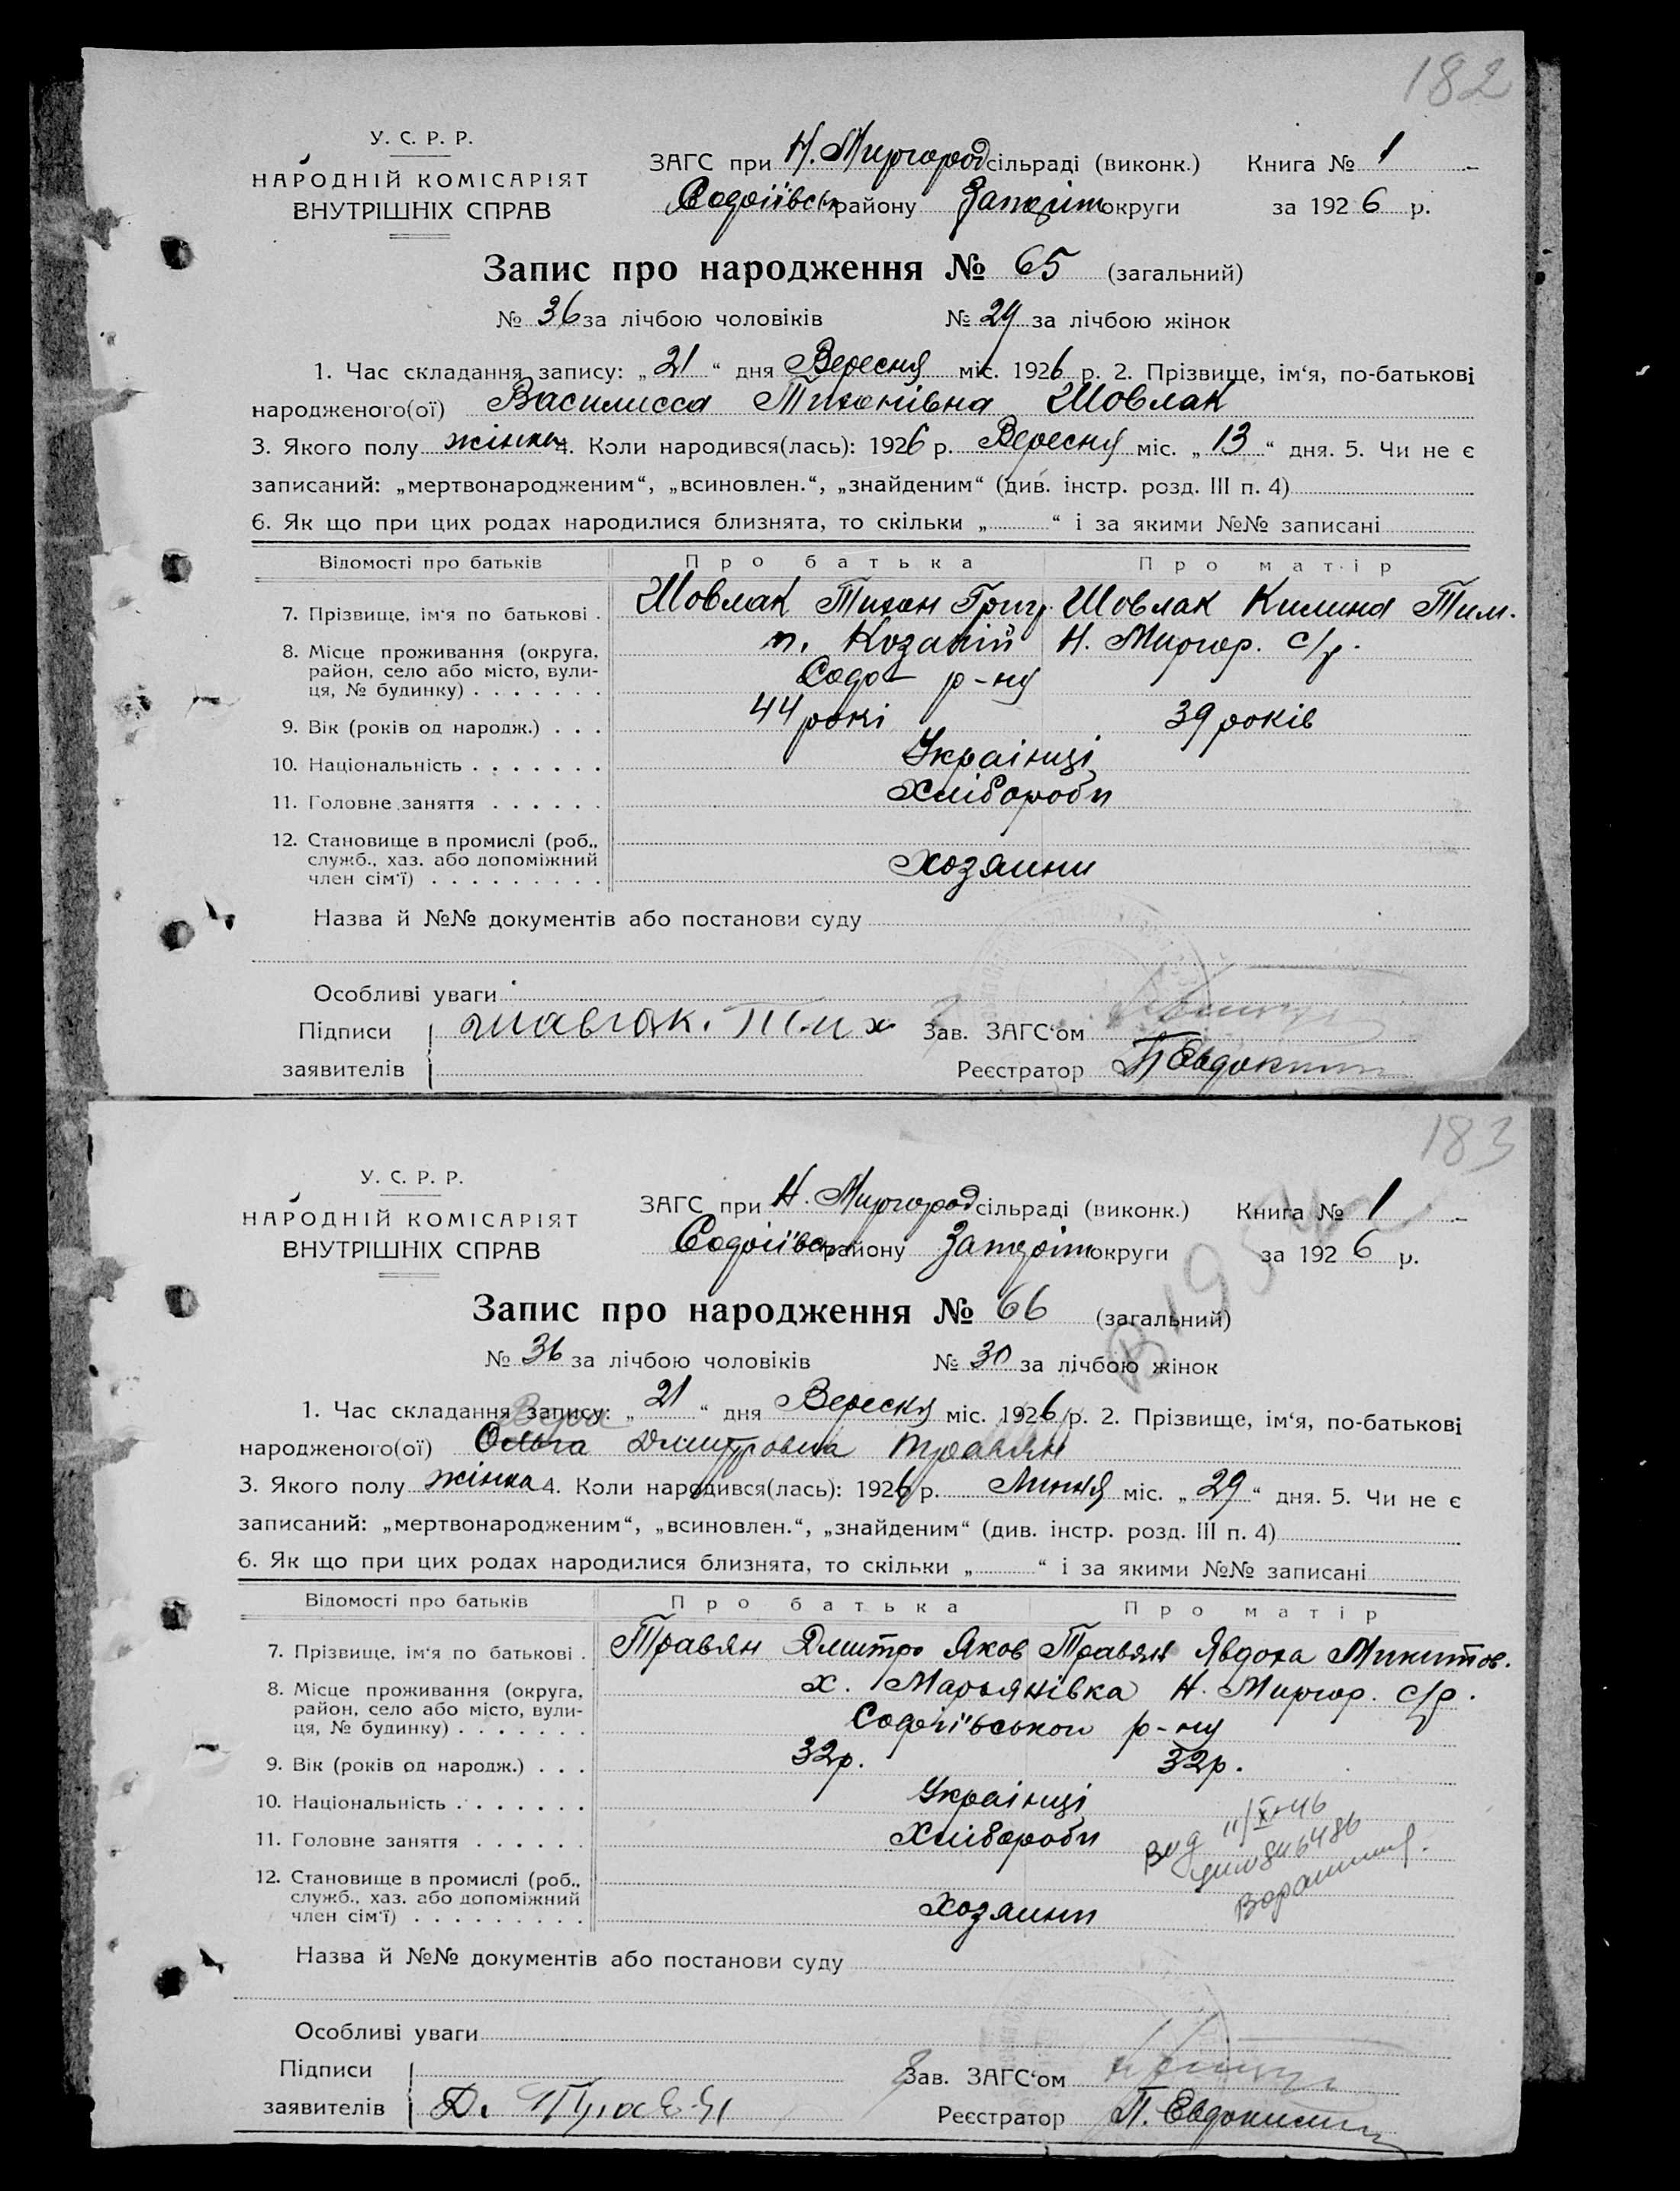 182
У. С. Р. Р.
НАРОДНІЙ КОМІСАРІЯТ
ВНУТРІШНІХ СПРАВ
ЗАГС при Н. Миргород сільраді (виконк.) Книга № 1
району округи за 1926 р.
Запис про народження № 65 (загальний)
№ 36 за лічбою чоловіків № 29 за лічбою жінок
1. Час складання запису: „21“ дня Вересня міс. 1926 р. 2. Прізвище, ім‘я, по-батькові
народженого(ої) Василисса Тихонівна Шовлак
3. Якого полу жінка 4. Коли народився(лась): 1926 р. Вересня міс. „13“ дня. 5. Чи не є
записаний: „мертвонародженим“, „всиновлен.“, „знайденим“ (див. інстр. розд. III п. 4)
6. Як що при цих родах народилися близнята, то скільки „ “ і за якими №№ записані
Відомості про батьків Про батька Про матір
7. Прізвище, ім‘я по батькові . Шовлак Тихон Григ. Шовлак Килина Тим.
8. Місце проживання (округа, Н. Миргор. с/р.
район, село або місто, вули- р-ну
ця, № будинку)
9. Вік (років од народж.) . . . 44 рокі 39 років
10. Національність Українці
11. Головне заняття Хлібороби
12. Становище в промислі (роб.,
служб., хаз. або допоміжний Хозаини
член сім‘ї)
Назва й №№ документів або постанови суду
Особливі уваги
Підписи Зав. ЗАГС‘ом
заявителів Реєстратор П Евдоким
183
У. С. Р. Р.
НАРОДНІЙ КОМІСАРІЯТ
ВНУТРІШНІХ СПРАВ
ЗАГС при Н. Миргород сільраді (виконк.) Книга № 1
району округи за 1926 р.
Запис про народження № 66 (загальний)
№ 36 за лічбою чоловіків № 30 за лічбою жінок
1. Час складання запису: „21“ дня Вересня міс. 1926 р. 2. Прізвище, ім‘я, по-батькові
народженого(ої) Ольга Дмитровна Травян
3. Якого полу жінка 4. Коли народився(лась): 1926 р. Липня міс. „29“ дня. 5. Чи не є
записаний: „мертвонародженим“, „всиновлен.“, „знайденим“ (див. інстр. розд. III п. 4)
6. Як що при цих родах народилися близнята, то скільки „ “ і за якими №№ записані
Відомості про батьків Про батька Про матір
7. Прізвище, ім‘я по батькові . Травян Дмитро Яков Травян Явдоха Микитов.
8. Місце проживання (округа, х. Марьянівка Н. Миргор. с/р.
район, село або місто, вули- р-ну
ця, № будинку)
9. Вік (років од народж.) . . . 32р. 32р.
10. Національність Українці
11. Головне заняття Хлібороби
12. Становище в промислі (роб.,
служб., хаз. або допоміжний Хозаини
член сім‘ї)
Назва й №№ документів або постанови суду
Особливі уваги
Підписи Зав. ЗАГС‘ом
заявителів Д. Травян Реєстратор П. Евдоким